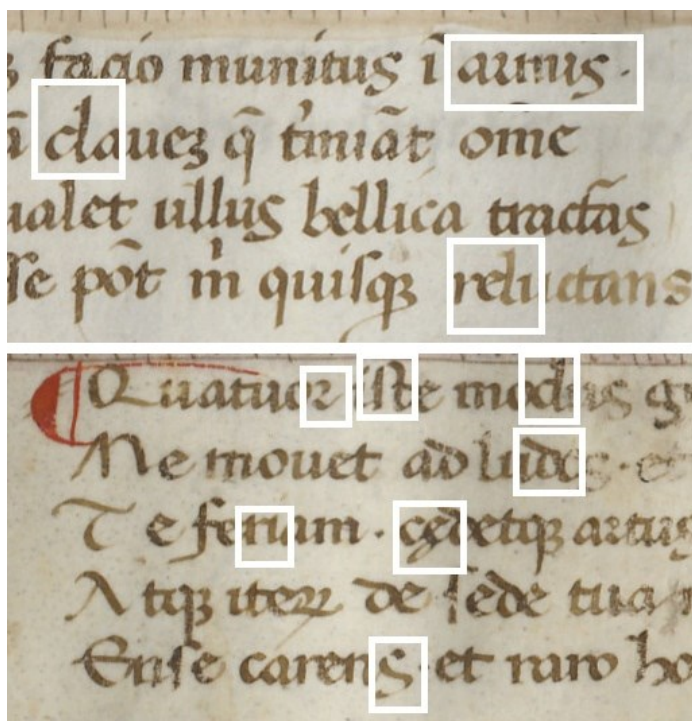 facio munitus ĩ artus.
clauez q̄ t'miāt om̄e
ualet ullus bellica tractās
sse pōt m̍ quisqꝫ reluctans
Quatuor iste modus
Ne mouet ad ludos. et
Te feriam. cedetqꝫ artus
Atqꝫ iteꝝ de sede tua
Ense carens. et raro ho